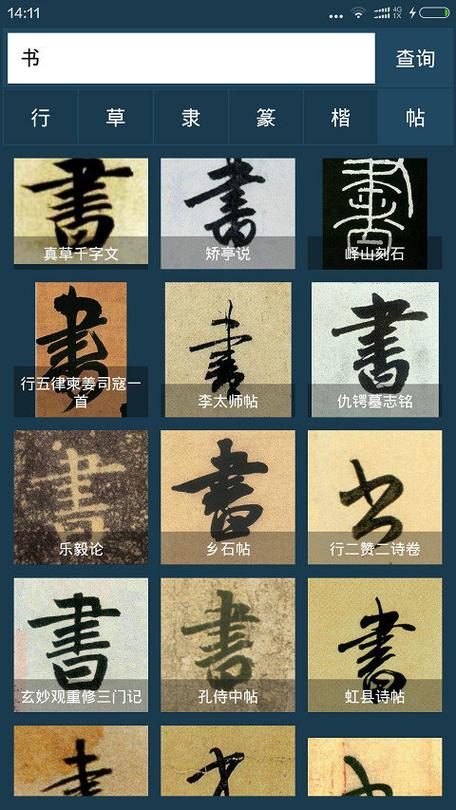 14:11
4G
1X
书
查询
行
草
隶
篆
楷
帖
書
真草千字文
書
矫亭说
書
峄山刻石
書
行五律柬姜司寇一
首
書
李太师帖
書
仇锷墓志铭
書
乐毅论
書
乡石帖
书
行二赞二诗卷
書
玄妙观重修三门记
書
孔侍中帖
書
虹县诗帖